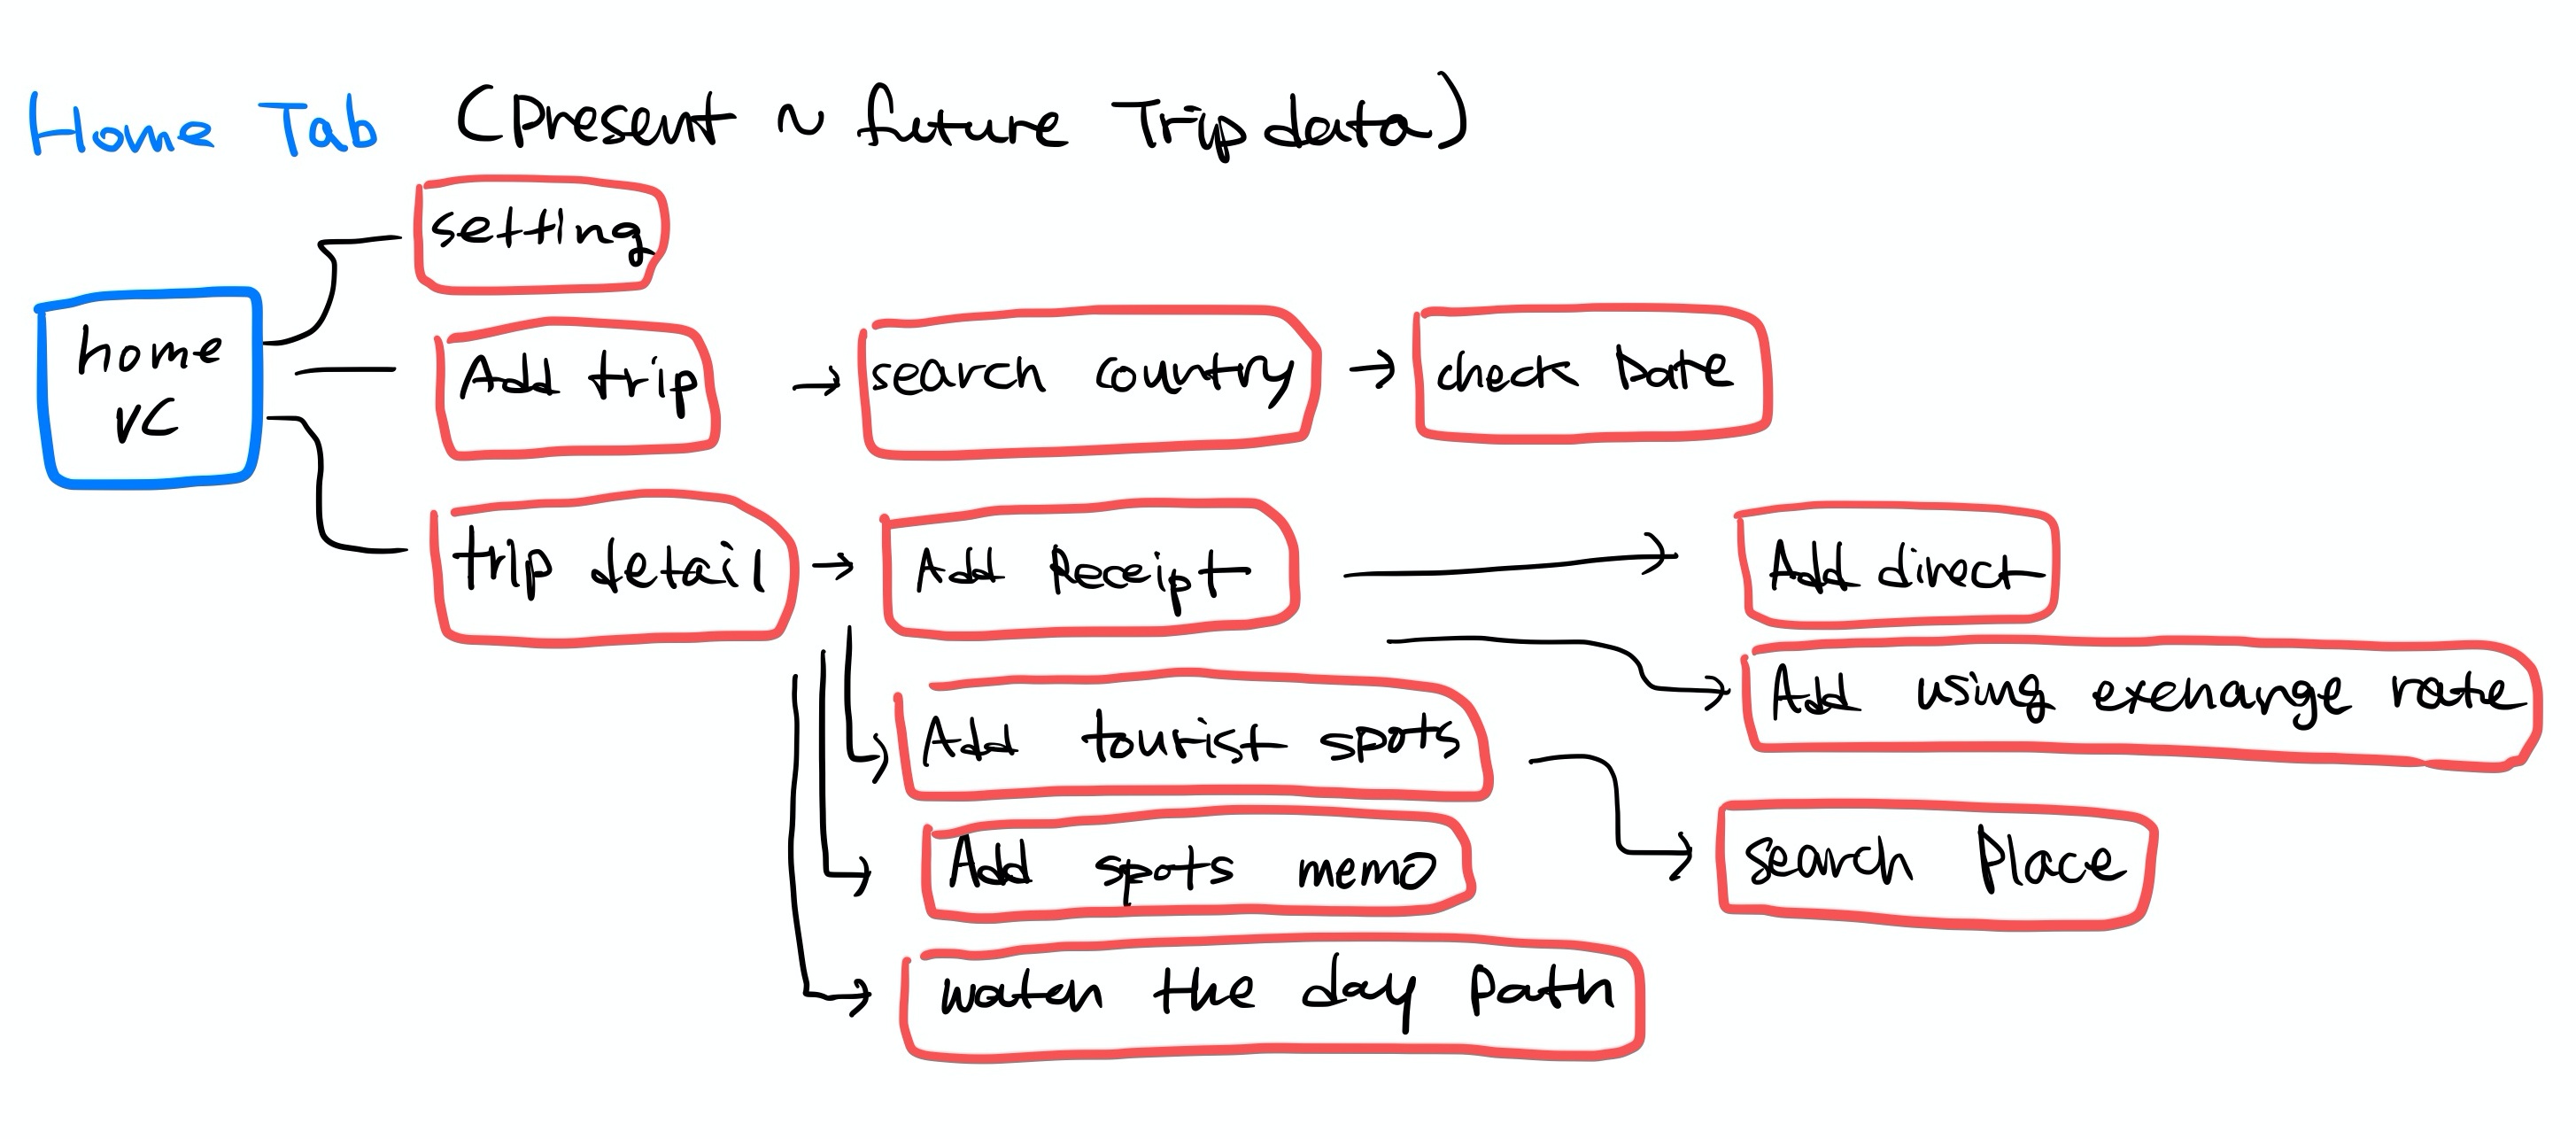 Home Tab (Present ~ future Trip data)
setting
home
VC
Add trip → search country → check Date
trip detail → Add Receipt → Add direct
Add using exchange rate
Add tourist spots
Add spots memo
search Place
watch the day Path